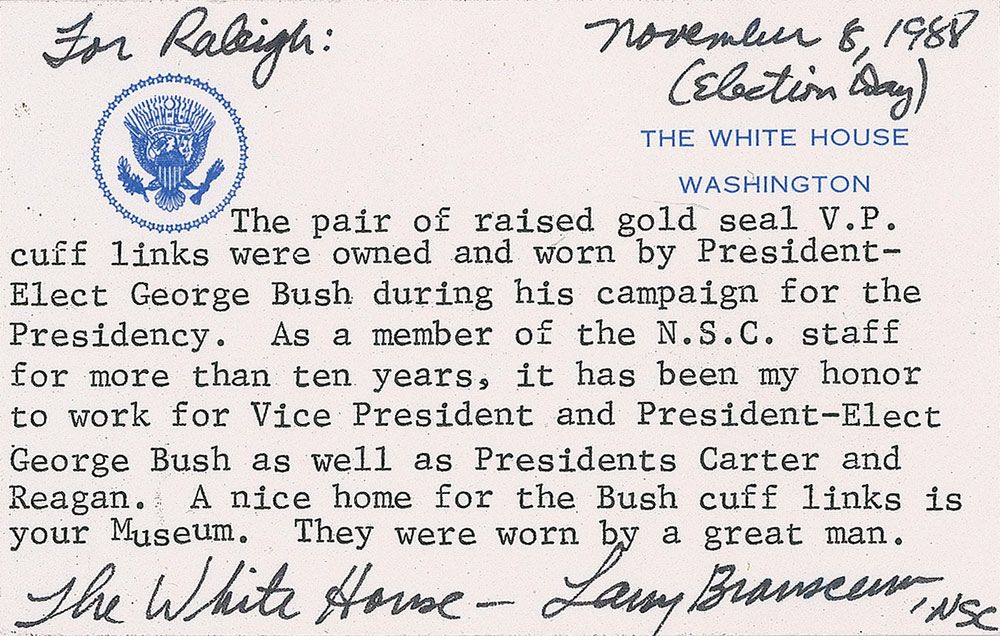 For Raleigh:
November 8, 1988
(Election Day)
THE WHITE HOUSE
WASHINGTON
The pair of raised gold seal V.P.
cuff links were owned and worn by President-
Elect George Bush during his campaign for the
Presidency. As a member of the N.S.C. staff
for more than ten years, it has been my honor
to work for Vice President and President-Elect
George Bush as well as Presidents Carter and
Reagan. A nice home for the Bush cuff links is
your Museum. They were worn by a great man.
The White House - Larry Branscum, NSC